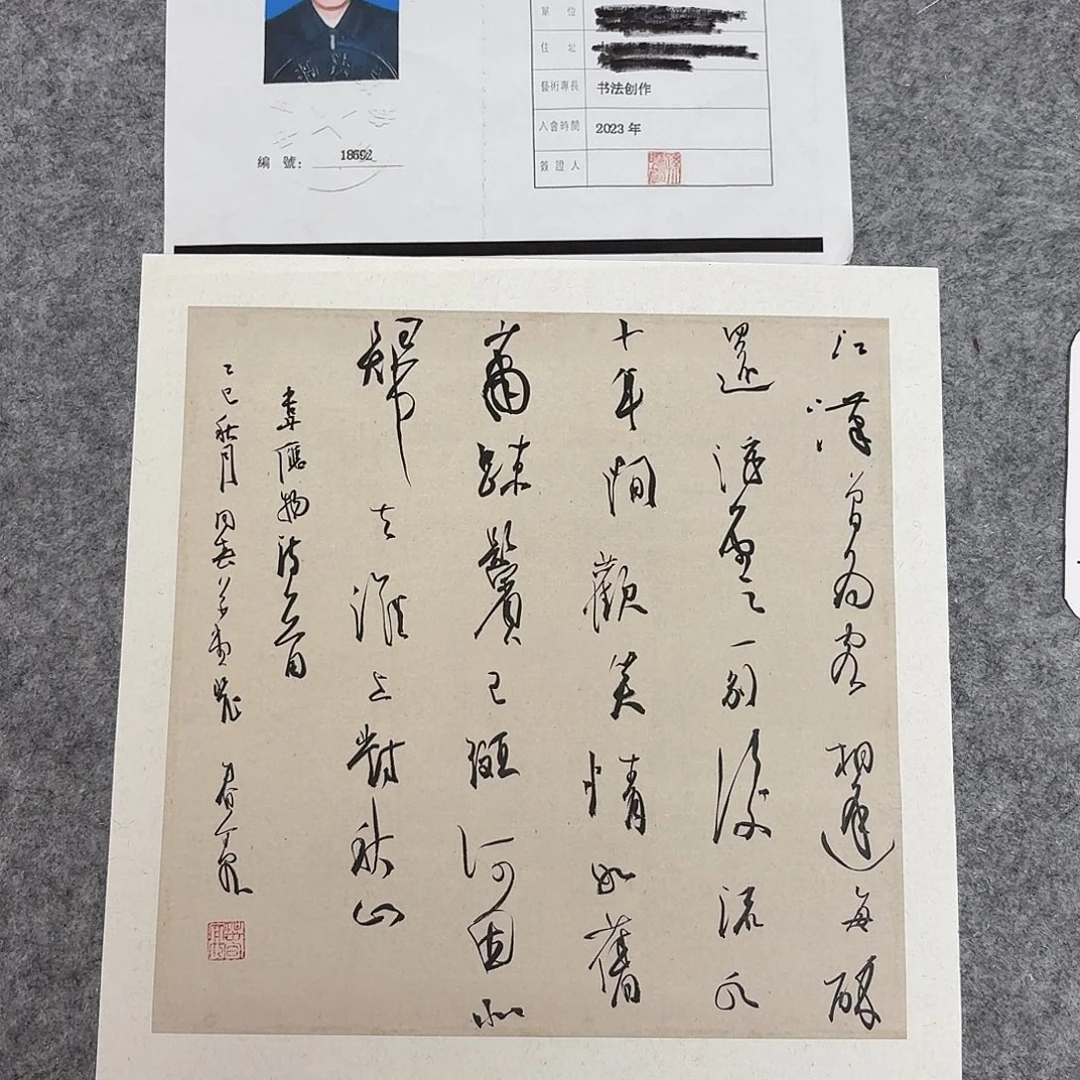 單位
住址
藝術專長 书法创作
入會時間 2023 年
簽證人
編號: 18692
江漢曾為客相逢每醉
還浮雲一別後流水
十年間歡笑情如舊
蕭踈鬢已斑何因北
歸去淮上對秋山
韋應物詩一首
乙巳秋月